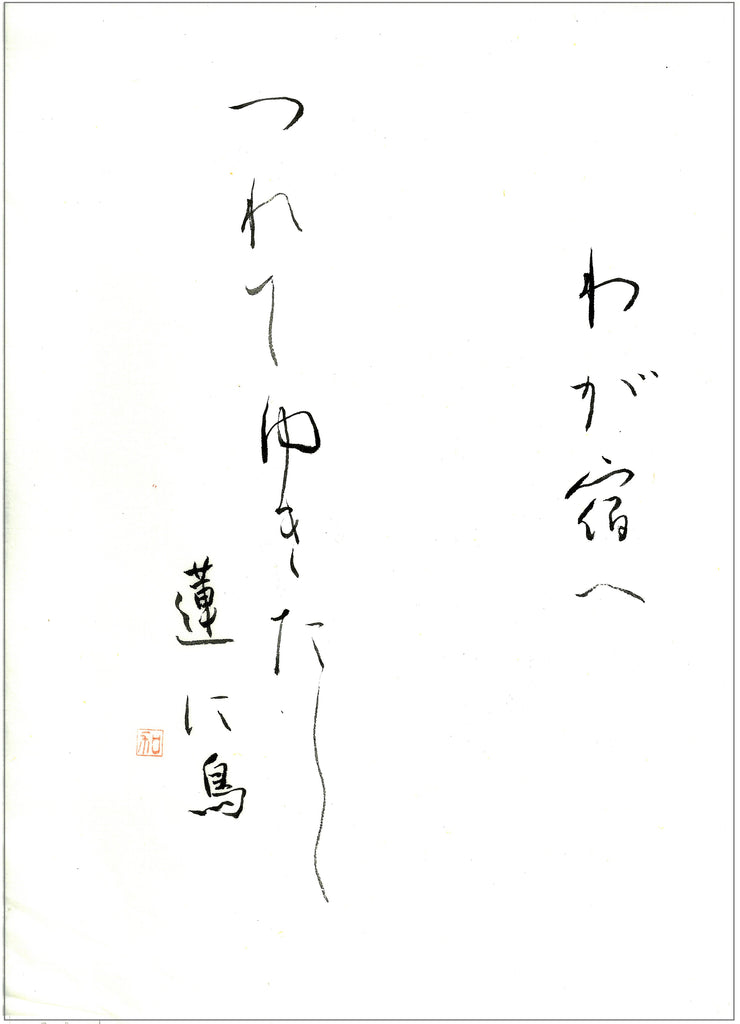 わが宿へ
つれてゆきたし
蓮に鳥
和